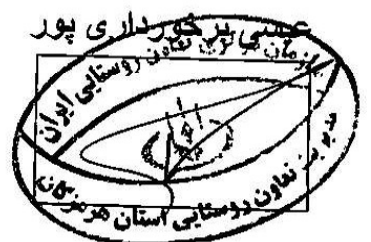 عیسی برخورداری پور
سازمان مرکزی تعاون روستایی ایران
مدیریت تعاون روستایی استان هرمزگان